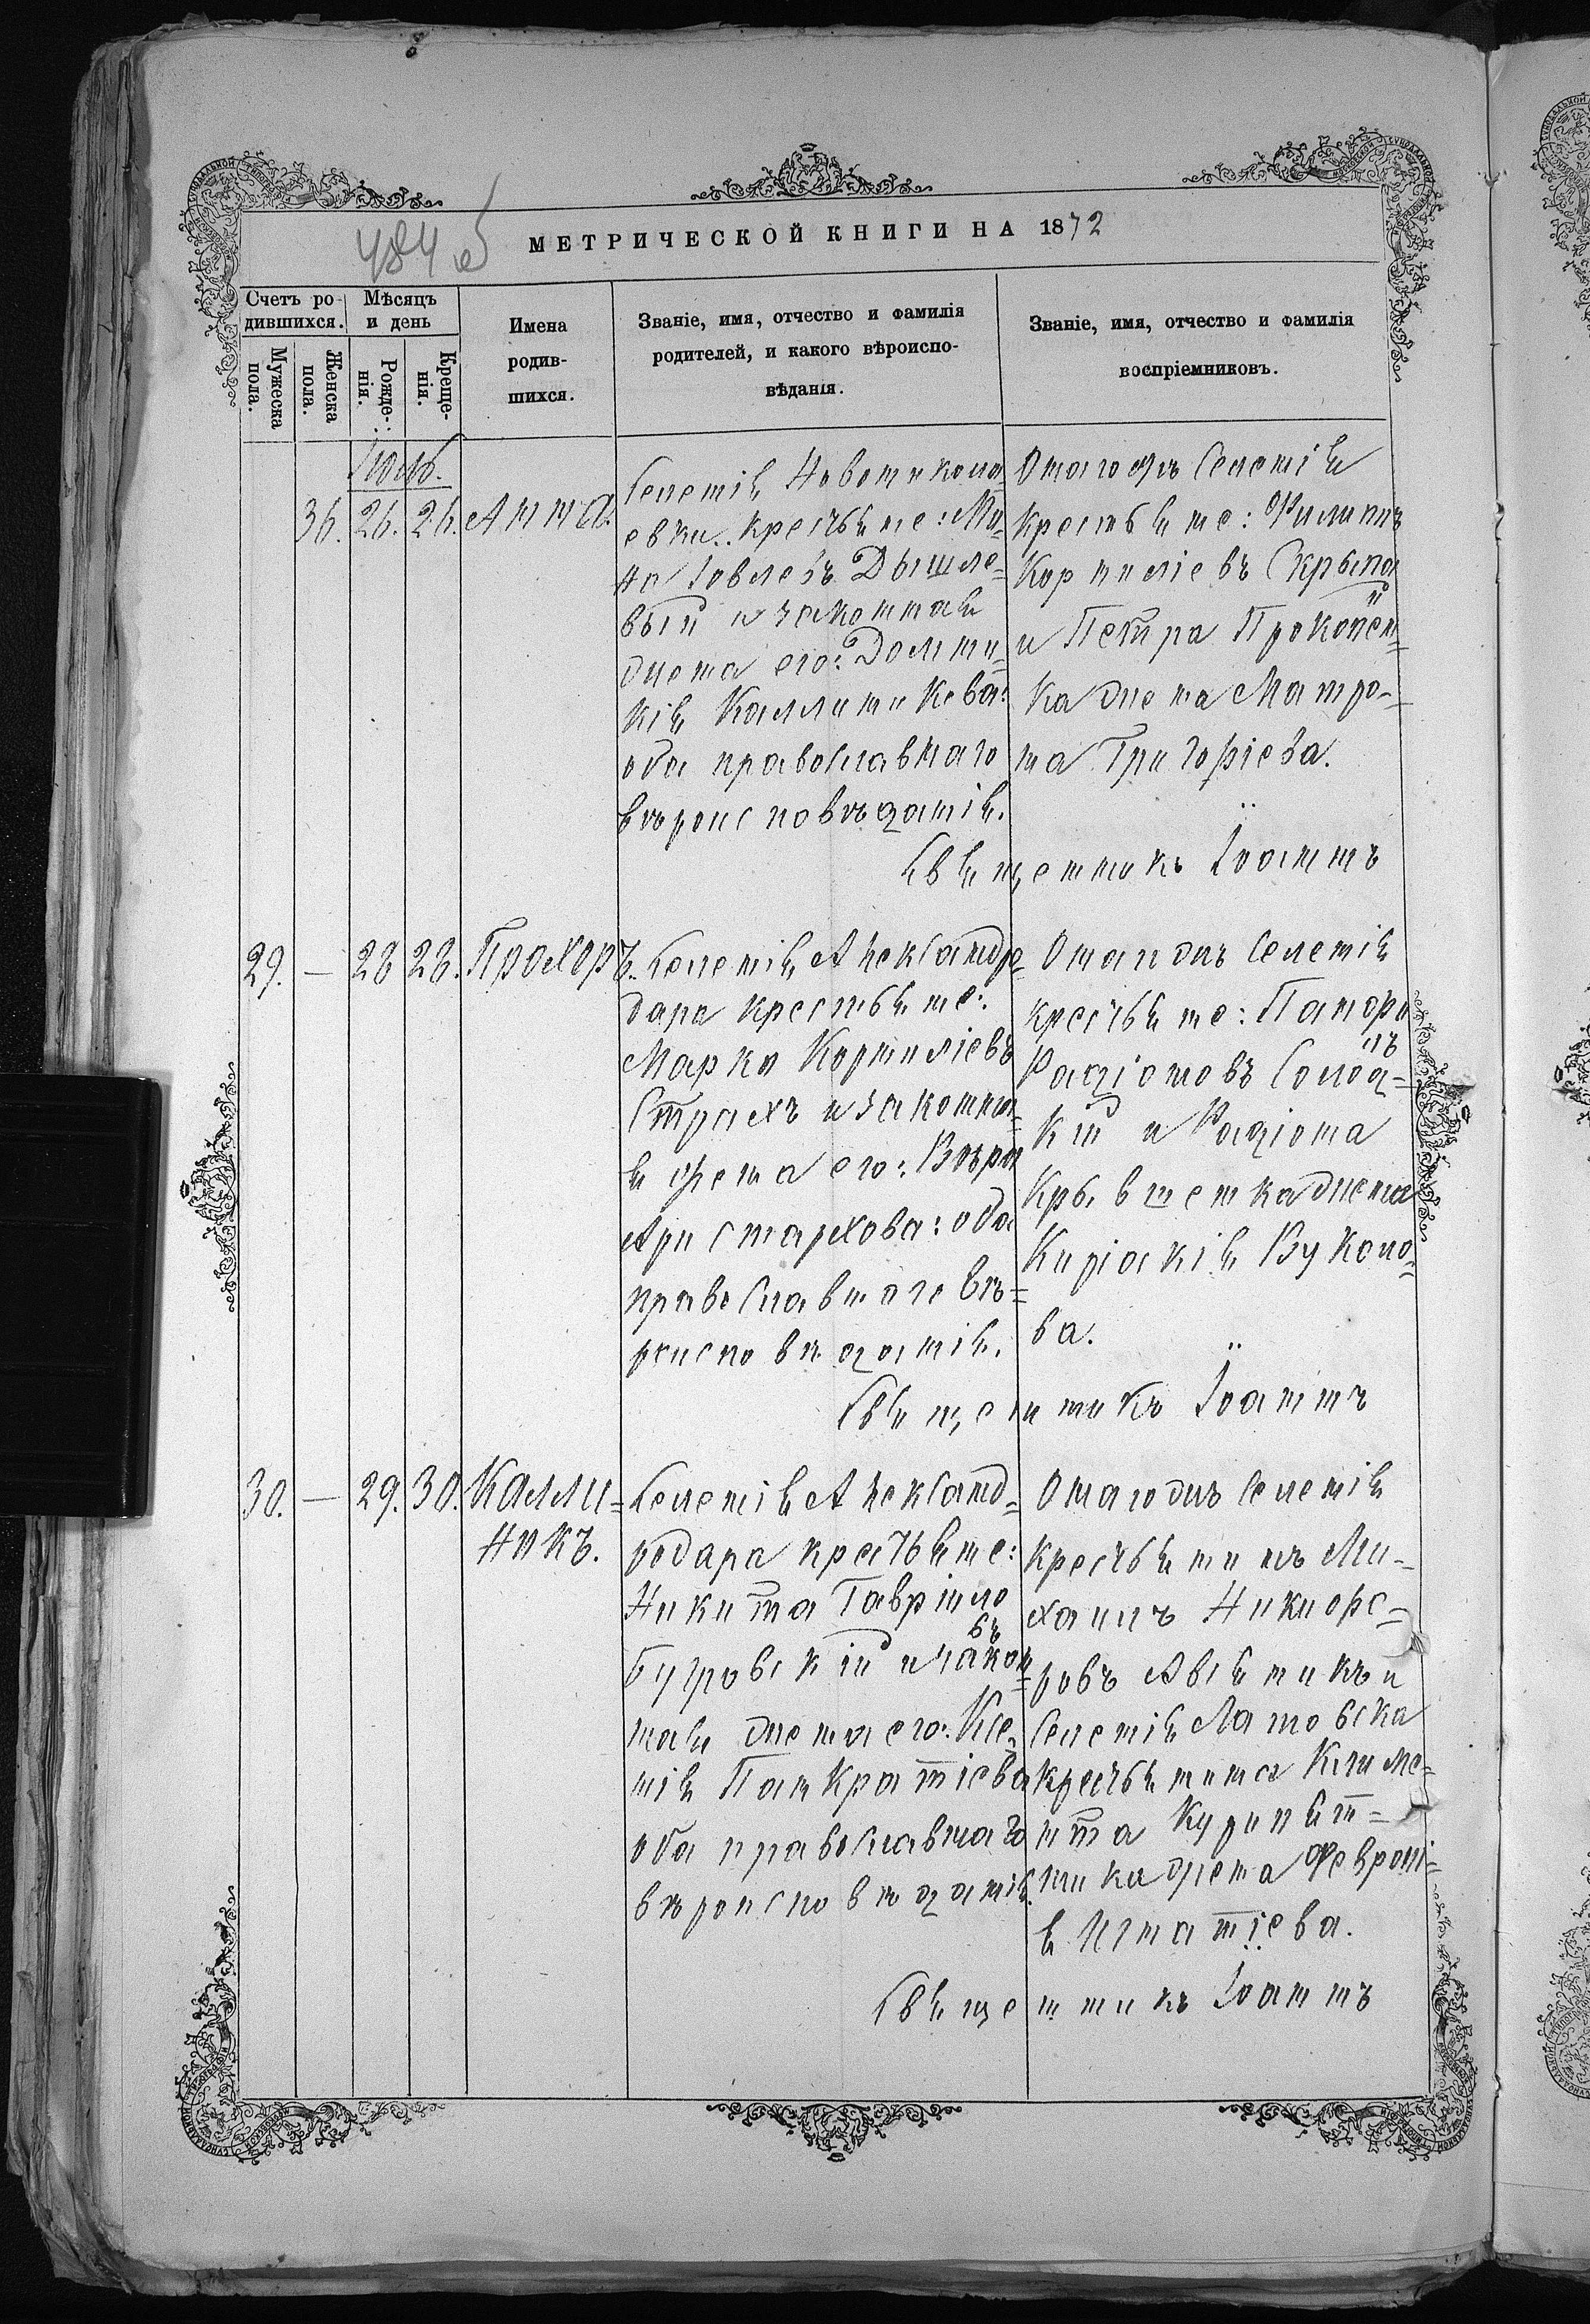 484 об
МЕТРИЧЕСКОЙ КНИГИ НА 1872
Счетъ ро-
дившихся.
Мужеска
пола.
Женска
пола.
Мѣсяцъ
и день
Рожде-
нія.
Креще-
нія.
Имена
родив-
шихся.
Званіе, имя, отчество и фамилія
родителей, и какого вѣроиспо-
вѣданія.
Званіе, имя, отчество и фамилія
воспріемниковъ.
Іюль.
36. 26. 26. Анна.
Селенія Новониколо
евки.. крестьяне: Ми-
на Іовлевъ Дышле-
вый и законная
жена его: Домни-
кія Каллиникова:
оба православнаго
вѣроисповѣданія.
Онагожъ селенія
крестьяне: Филиппъ
Корниліевъ Скрыпа
и Петра Прокопен-
ка жена Матро-
на Григоріева.
Священникъ Іоаннъ
29. — 28 28. Прохоръ.
Селенія Александро-
дара крестьяне:
Марко Корниліевъ
Страхъ и законна-
я жена его: Вѣра
Аристархова: оба
православнаго вѣ-
роисповѣданія.
Онагожъ селенія
крестьяне: Панфи
лъ
Родіоновъ Солод-
кій и Родіона
Крывшенка жена
Киріакія Вуколо-
ва.
Священникъ Іоаннъ
30. — 29. 30. Калли-
никъ.
Селенія Александ-
родара крестьяне:
Никита Гавріило
въ
Бугровскій и закон-
ная жена его: Ксе-
нія Панкратіева
оба православнаго
вѣроисповѣданія.
Онагожъ селенія
крестьянинъ Ми-
хаилъ Никифо-
ровъ Авсяникъ и
селенія Латовска
крестьянина Климе-
нта Курипят-
ника жена Февроні-
я Игнатіева.
Священникъ Іоаннъ